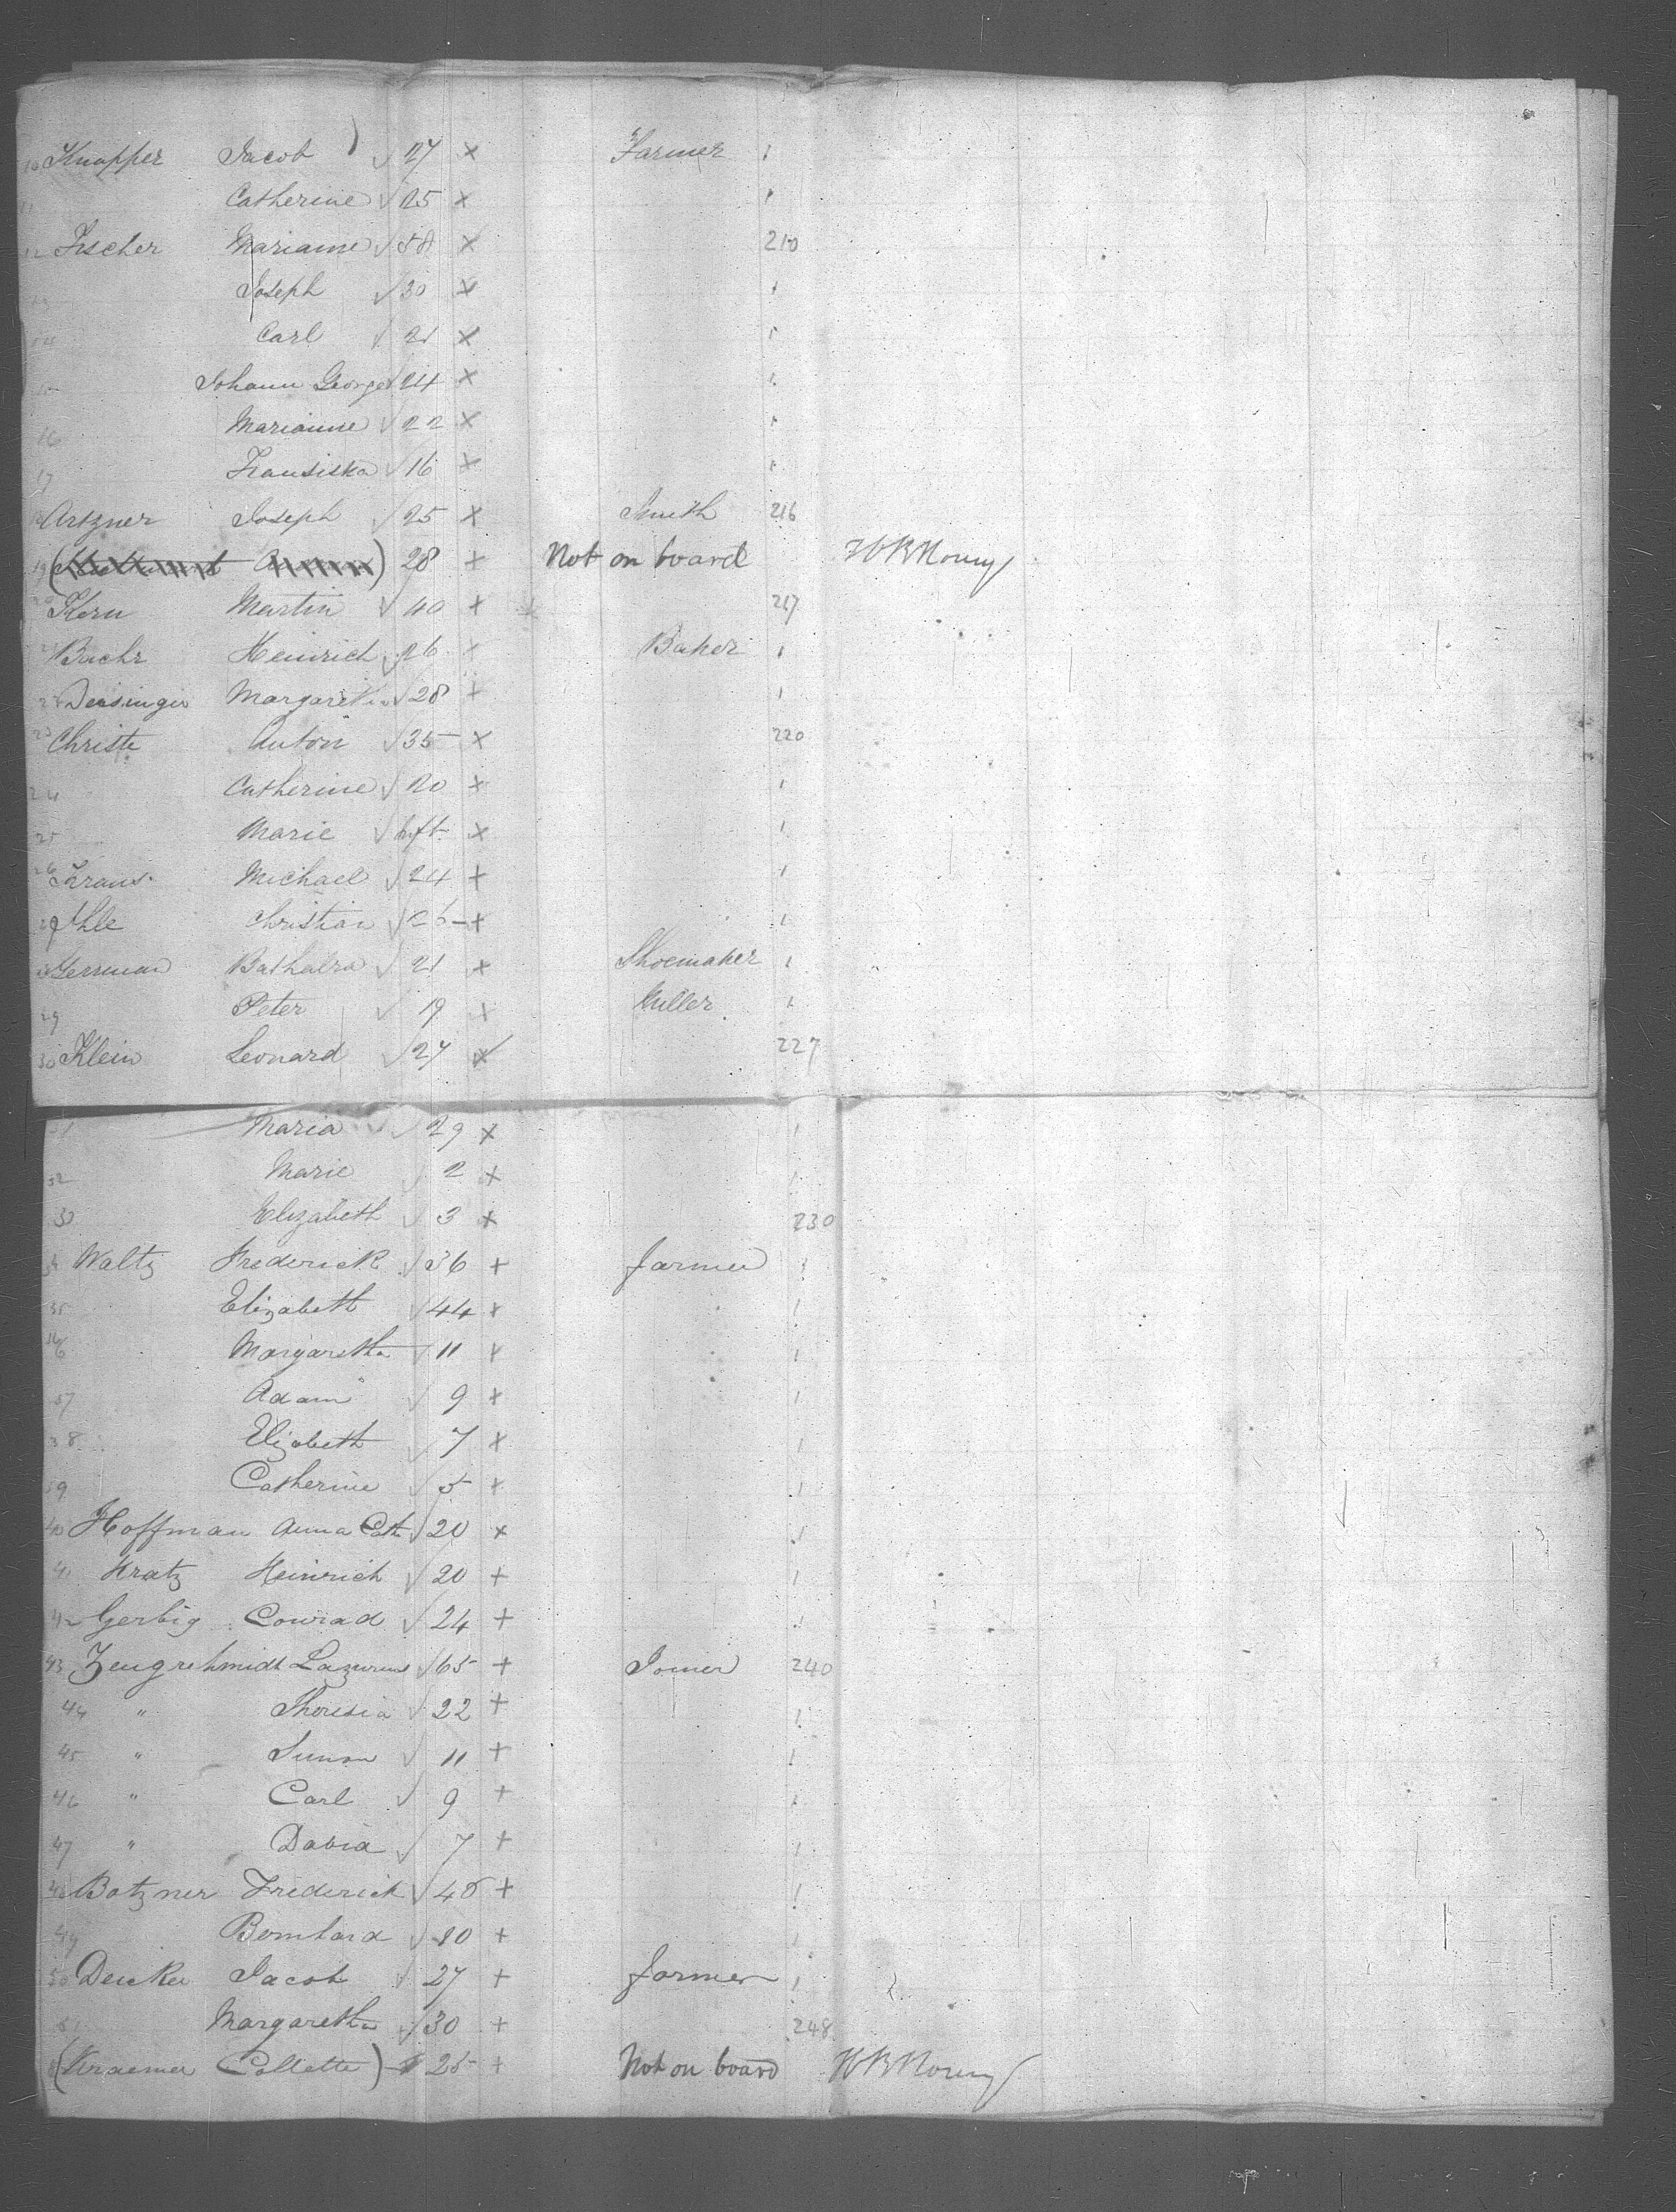 10 Knapper Jacob √ 27 × Farmer ı
11 Catherine √ 25 × ı
12 Fischer Marianne √ 58 × 210
13 Joseph √ 30 × ı
14 Carl √ 21 × ı
15 Johann George √ 24 × ı
16 Marianne √ 22 × ı
17 Fransiska √ 16 × ı
18 Artzner Joseph √ 25 × Smith 216
19 ( ) 28 × Not on board
20 Kern Martin √ 40 × 217
21 Buchr Heinrich √ 26 × Baker ı
22 Margaretha √ 28 + ı
23 Christe Anton √ 35 × 220
24 Catherine √ 20 × ı
25 Marie √ inft × ı
26 Kraus Michael √ 24 + ı
Christian √ 26 + ı
21 × Shoemaker ı
29 Peter √ 19 × Miller ı
30 Klein Leonard √ 27 × 227
31 Maria √ 29 × ı
32 Marie √ 2 × ı
33 Elizabeth √ 3 × 230
34 Waltz Frederick √ 36 + Farmer ı
35 Elizabeth √ 44 × ı
36 Margaretha √ 11 × ı
37 Adam √ 9 × ı
38 Elizabeth √ 7 × ı
39 Catherine √ 5 × ı
40 Hoffman Anna Cath √ 20 × ı
41 Kratz Heinrich √ 20 + ı
42 Gerbig Conrad √ 24 + ı
43 Zeugschmidt Lazurus √ 65 + Joiner 240
44 " Theresia √ 22 + ı
45 " Simon √ 11 + ı
46 " Carl √ 9 + ı
47 " David √ 7 + ı
48 Botzner Frederick √ 48 + ı
49 Bernhard √ 20 + ı
50 Deicker Jacob √ 27 + Farmer ı
51 Margaretha √ 30 + 248
(Kraemer Collette) 25 + Not on board